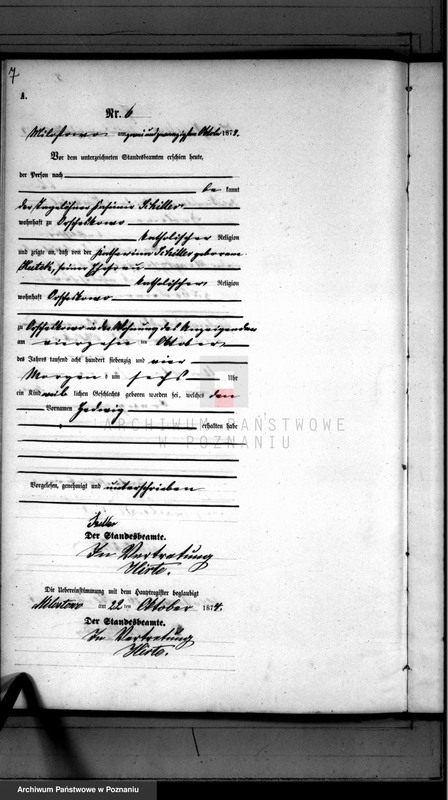 7
A.
Nr. 6
Milostowo am zwei und zwanzigsten Oktober 1874.
Vor dem unterzeichneten Standesbeamten erschien heute,
der Person nach
be kannt
der Tagelöhner Casimir Schiller
wohnhaft zu Orzeschkowo
katholischer Religion
und zeigte an, daß von der Katharina Schiller geborene
seiner Ehefrau
katholischer Religion
wohnhaft Orzeschkowo
zu Orzeschkowo in der Wohnung des Anzeigenden
am vierzehn ten Oktober
des Jahres tausend acht hundert siebenzig und vier
Morgens um sechs Uhr
ein Kind weib lichen Geschlechts geboren worden sei, welches den
Vornamen Hedwig
erhalten habe
ARCHIWUM PAŃSTWOWE
W POZNANIU
Vorgelesen, genehmigt und unterschrieben
Der Standesbeamte.
In Vertretung
Hirte.
Die Uebereinstimmung mit dem Hauptregister beglaubigt
Milostowo am 22 ten Oktober 1874.
Der Standesbeamte.
In Vertretung
Hirte.
Archiwum Państwowe w Poznaniu